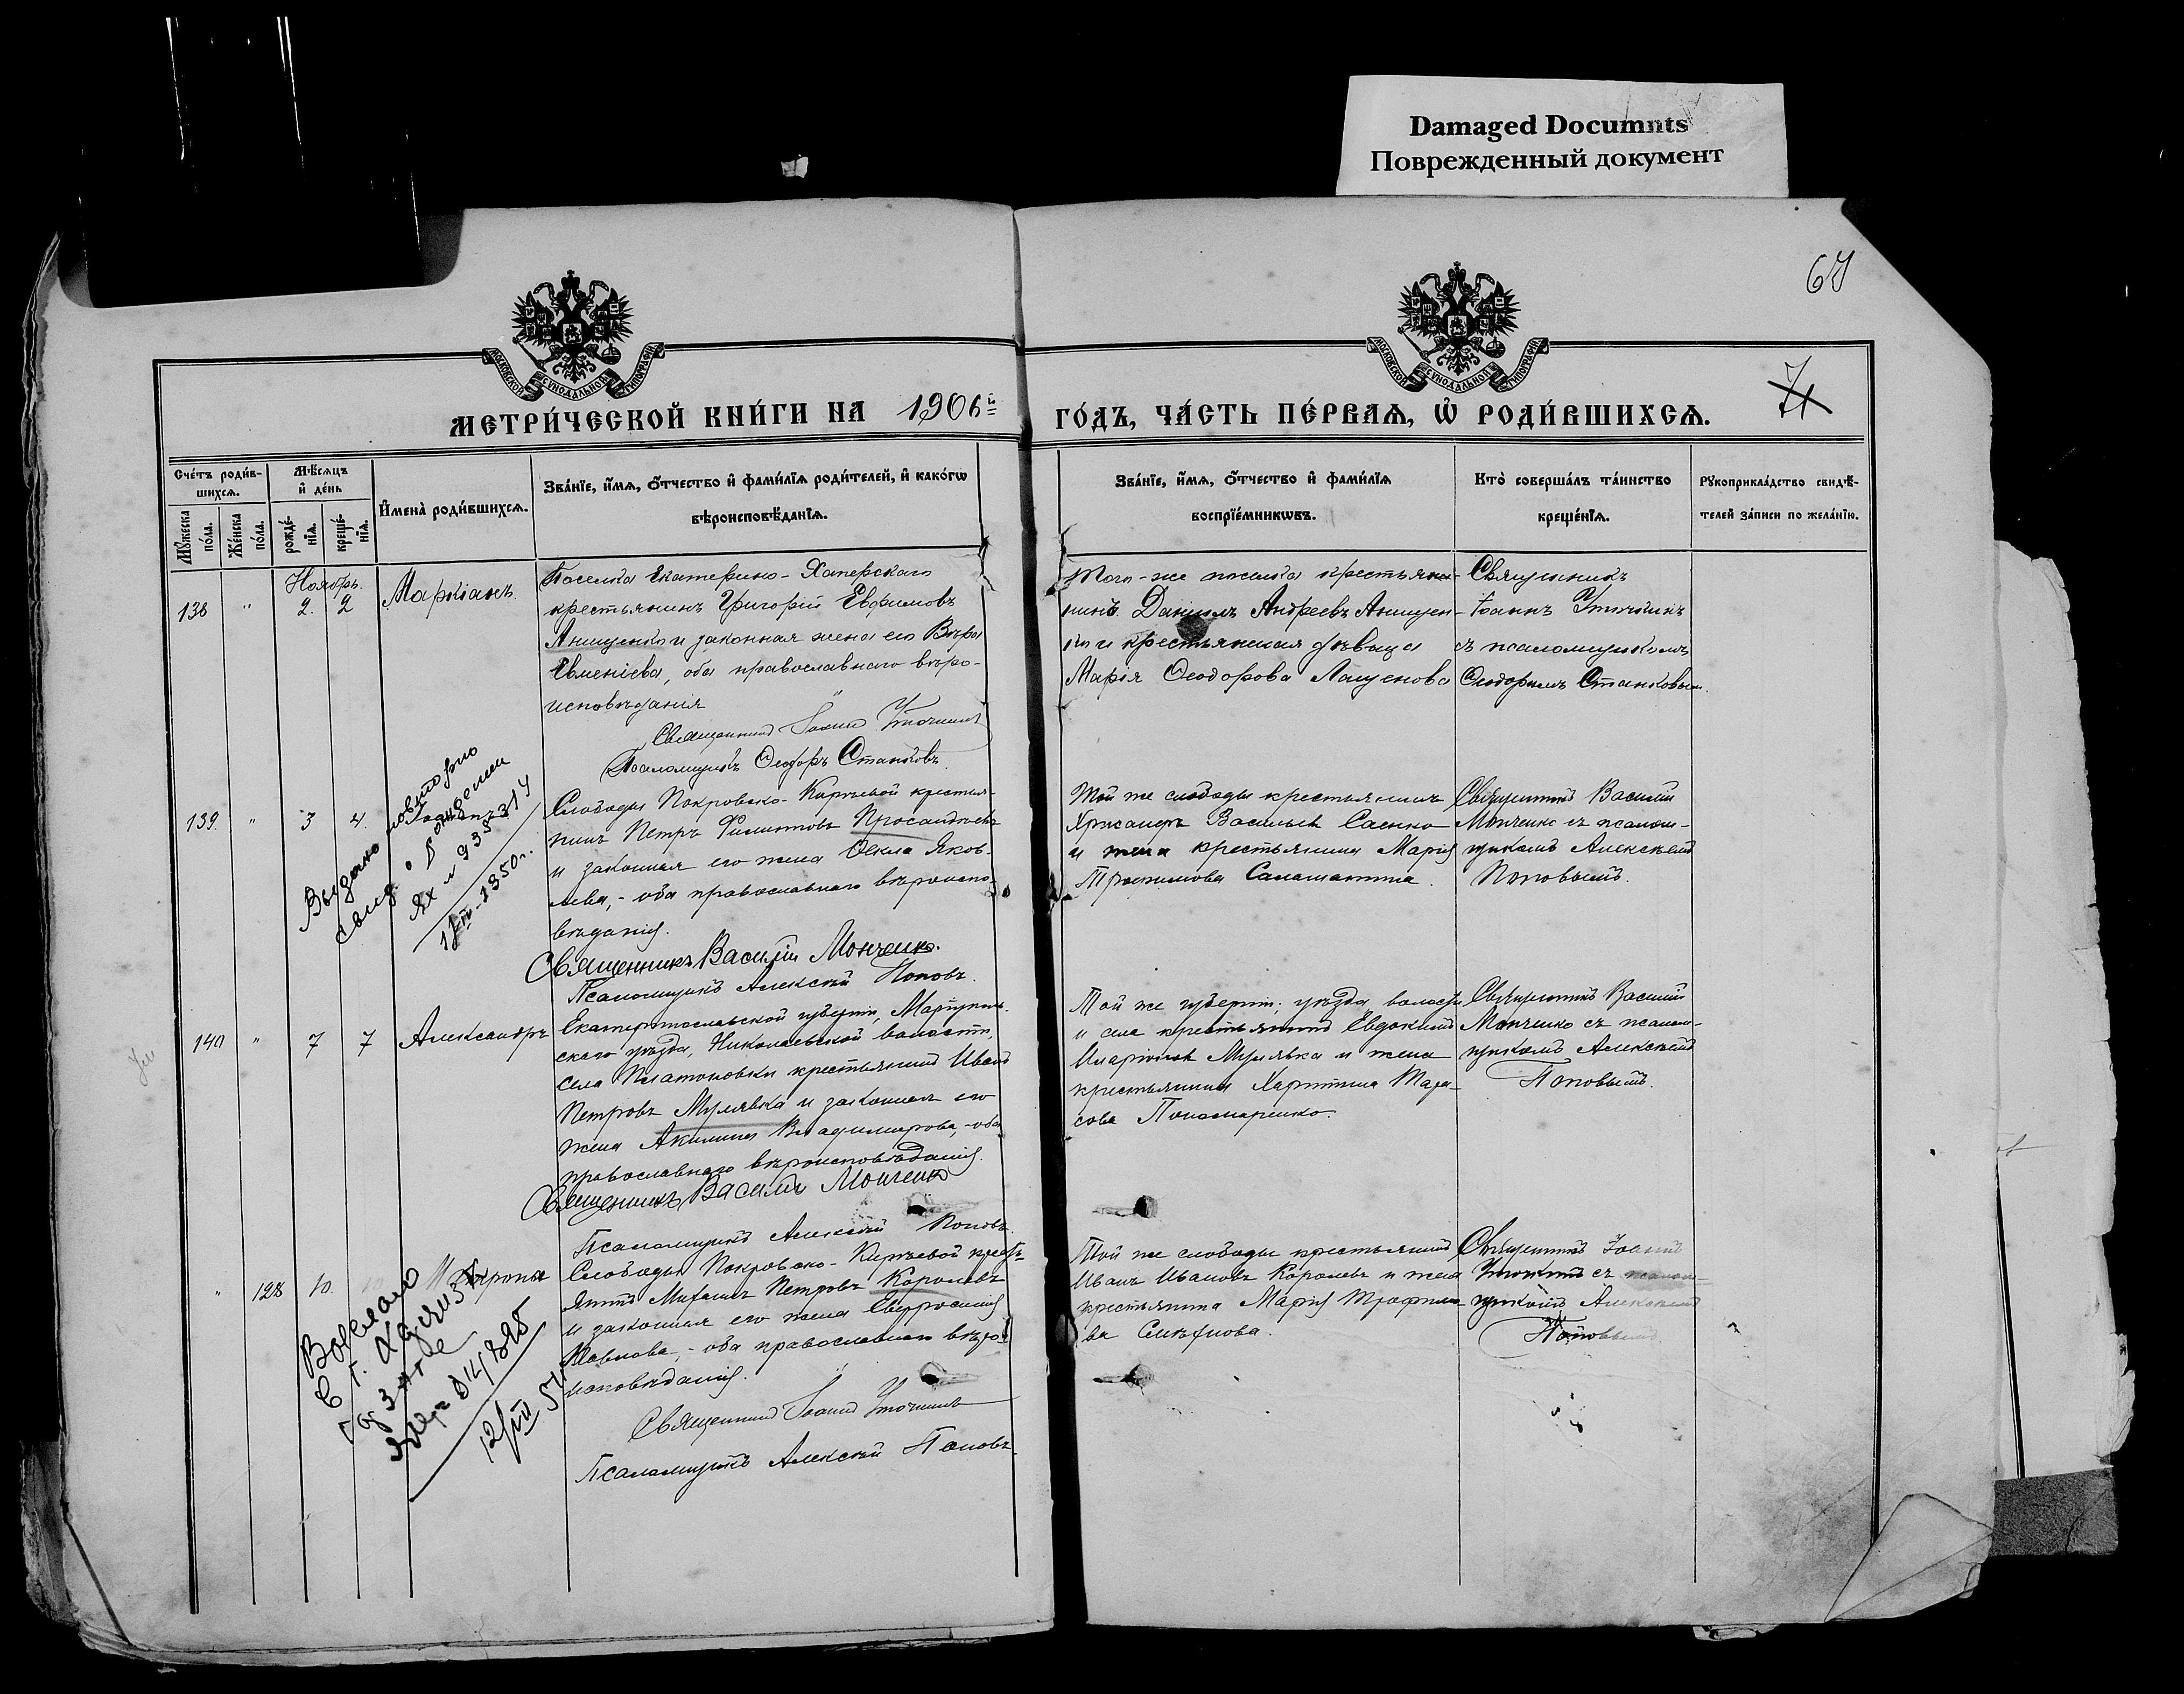 Damaged Documnts
Поврежденный документ
67
МОСКОВСКОЙ СѴНОДАЛЬНОЙ ТИПОГРАФІИ
МОСКОВСКОЙ СѴНОДАЛЬНОЙ ТИПОГРАФІИ
МЕТРИ́ЧЕСКОЙ КНИ́ГИ НА 1906й
ГО́ДЪ, ЧА́СТЬ ПЕ́РВАѦ, Ѡ҆ РОДИ́ВШИХСѦ.
Сче́тъ роди́в-
шихсѧ.
Мѣ́сѧцъ
и҆ де́нь
И҆мена̀ роди́вшихсѧ.
Зва́нїе, и҆́мѧ, ѻ҆́тчество и҆ фами́лїѧ роди́телей, и҆ како́гѡ
вѣроисповѣ́данїѧ.
Мꙋ́жеска
по́ла.
Же́нска
по́ла.
рожде́-
нїѧ.
креще́-
нїѧ.
Зва́нїе, и҆́мѧ, ѻ҆́тчество и҆ фами́лїѧ
воспрїе́мникѡвъ.
Кто̀ соверша́лъ та́инство
креще́нїѧ.
Рꙋкоприкла́дство свидѣ́-
телей за́писи по жела́нїю.
Ноябрь.
138 " 2. 2 Маркіанъ.
Поселка Екатерино-Хаперскаго
крестьянинъ Григорій Евфимовъ
Анищенко и законная жена его Вѣра
Евменіева, оба православнаго вѣро-
исповѣданія
Священникъ Іоаннъ Уточкинъ
Псаломщикъ Ѳеодоръ Станковъ.
Того-же поселка крестья-
нинъ Даніилъ Андреевъ Анищен-
ко и крестьянская дѣвица
Марія Ѳеодорова Лащенова
Священникъ
Іоаннъ Уточкинъ
съ псаломщикомъ
Ѳеодоромъ Станковым.
139. " 3 4.
Выдано повторно
свид. о рождении
ЯХ № 335314
1350г.
Слободы Покровско-Кирѣевой крестья-
нинъ Петръ Филипповъ
и законная его жена Ѳекла Яков-
лева,- оба православнаго вѣроиспо-
вѣданія.
Священникъ Василій Мончено.
Псаломщикъ Алексѣй Поповъ.
Той же слободы крестьянинъ
Хрисанфъ Васильевъ Саенко
и жена крестьянина Марія
Трофимова Саламатина.
Священникъ Василій
Монченко съ псалом-
щикомъ Алексѣемъ
Поповымъ.
140 " 7 7 Александръ
Екатеринославской губерніи, Маріуполь-
скаго уѣзда, Николаевской волости,
села Платоновки крестьянинъ Иванъ
Петровъ Мулявка и законная его
жена Акилина Владимирова,- оба
православнаго вѣроисповѣданія.
Священникъ Василій Монченко
Псаломщикъ Алексѣй Поповъ.
Той же губерніи, уѣзда, волости
и села крестьянинъ Евдокимъ
Иларіоновъ Мулявка и жена
крестьянина Харитина Тара-
сова Пономаренко.
Священникъ Василій
Монченко съ псалом-
щикомъ Алексѣемъ
Поповымъ.
" 128 10. Матрона
Выслано
в г.
Слободы Покровско-Кирѣевой кресть-
янинъ Михаилъ Петровъ Королевъ
и законная его жена Евфросинія
Павлова,- оба православнаго вѣро-
исповѣданія.
Священникъ Іоаннъ Уточкинъ
Псаломщикъ Алексѣй Поповъ.
Той же слободы крестьянинъ
Иванъ Ивановъ Королевъ и жена
крестьянина Марія Трофимо-
ва Смѣхнова.
Священникъ Іоаннъ
Уточкинъ съ псалом-
щикомъ Алексѣемъ
Поповымъ.